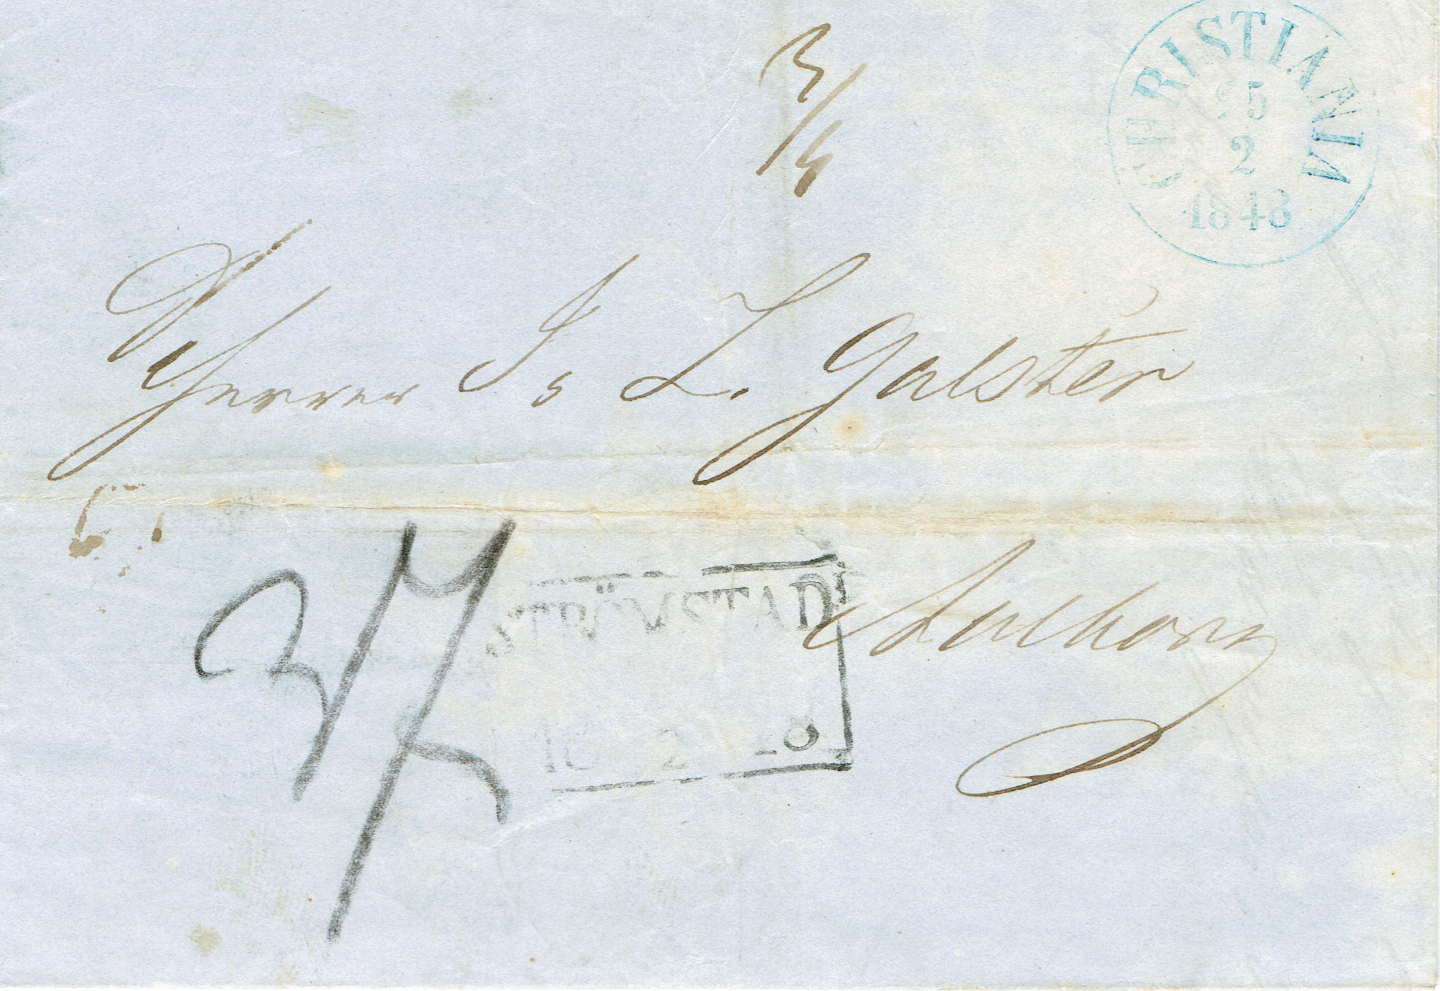 CHRISTIANIA
25
2
1848
Herrer Js L. Galster
STRÖMSTAD
2
Aalborg